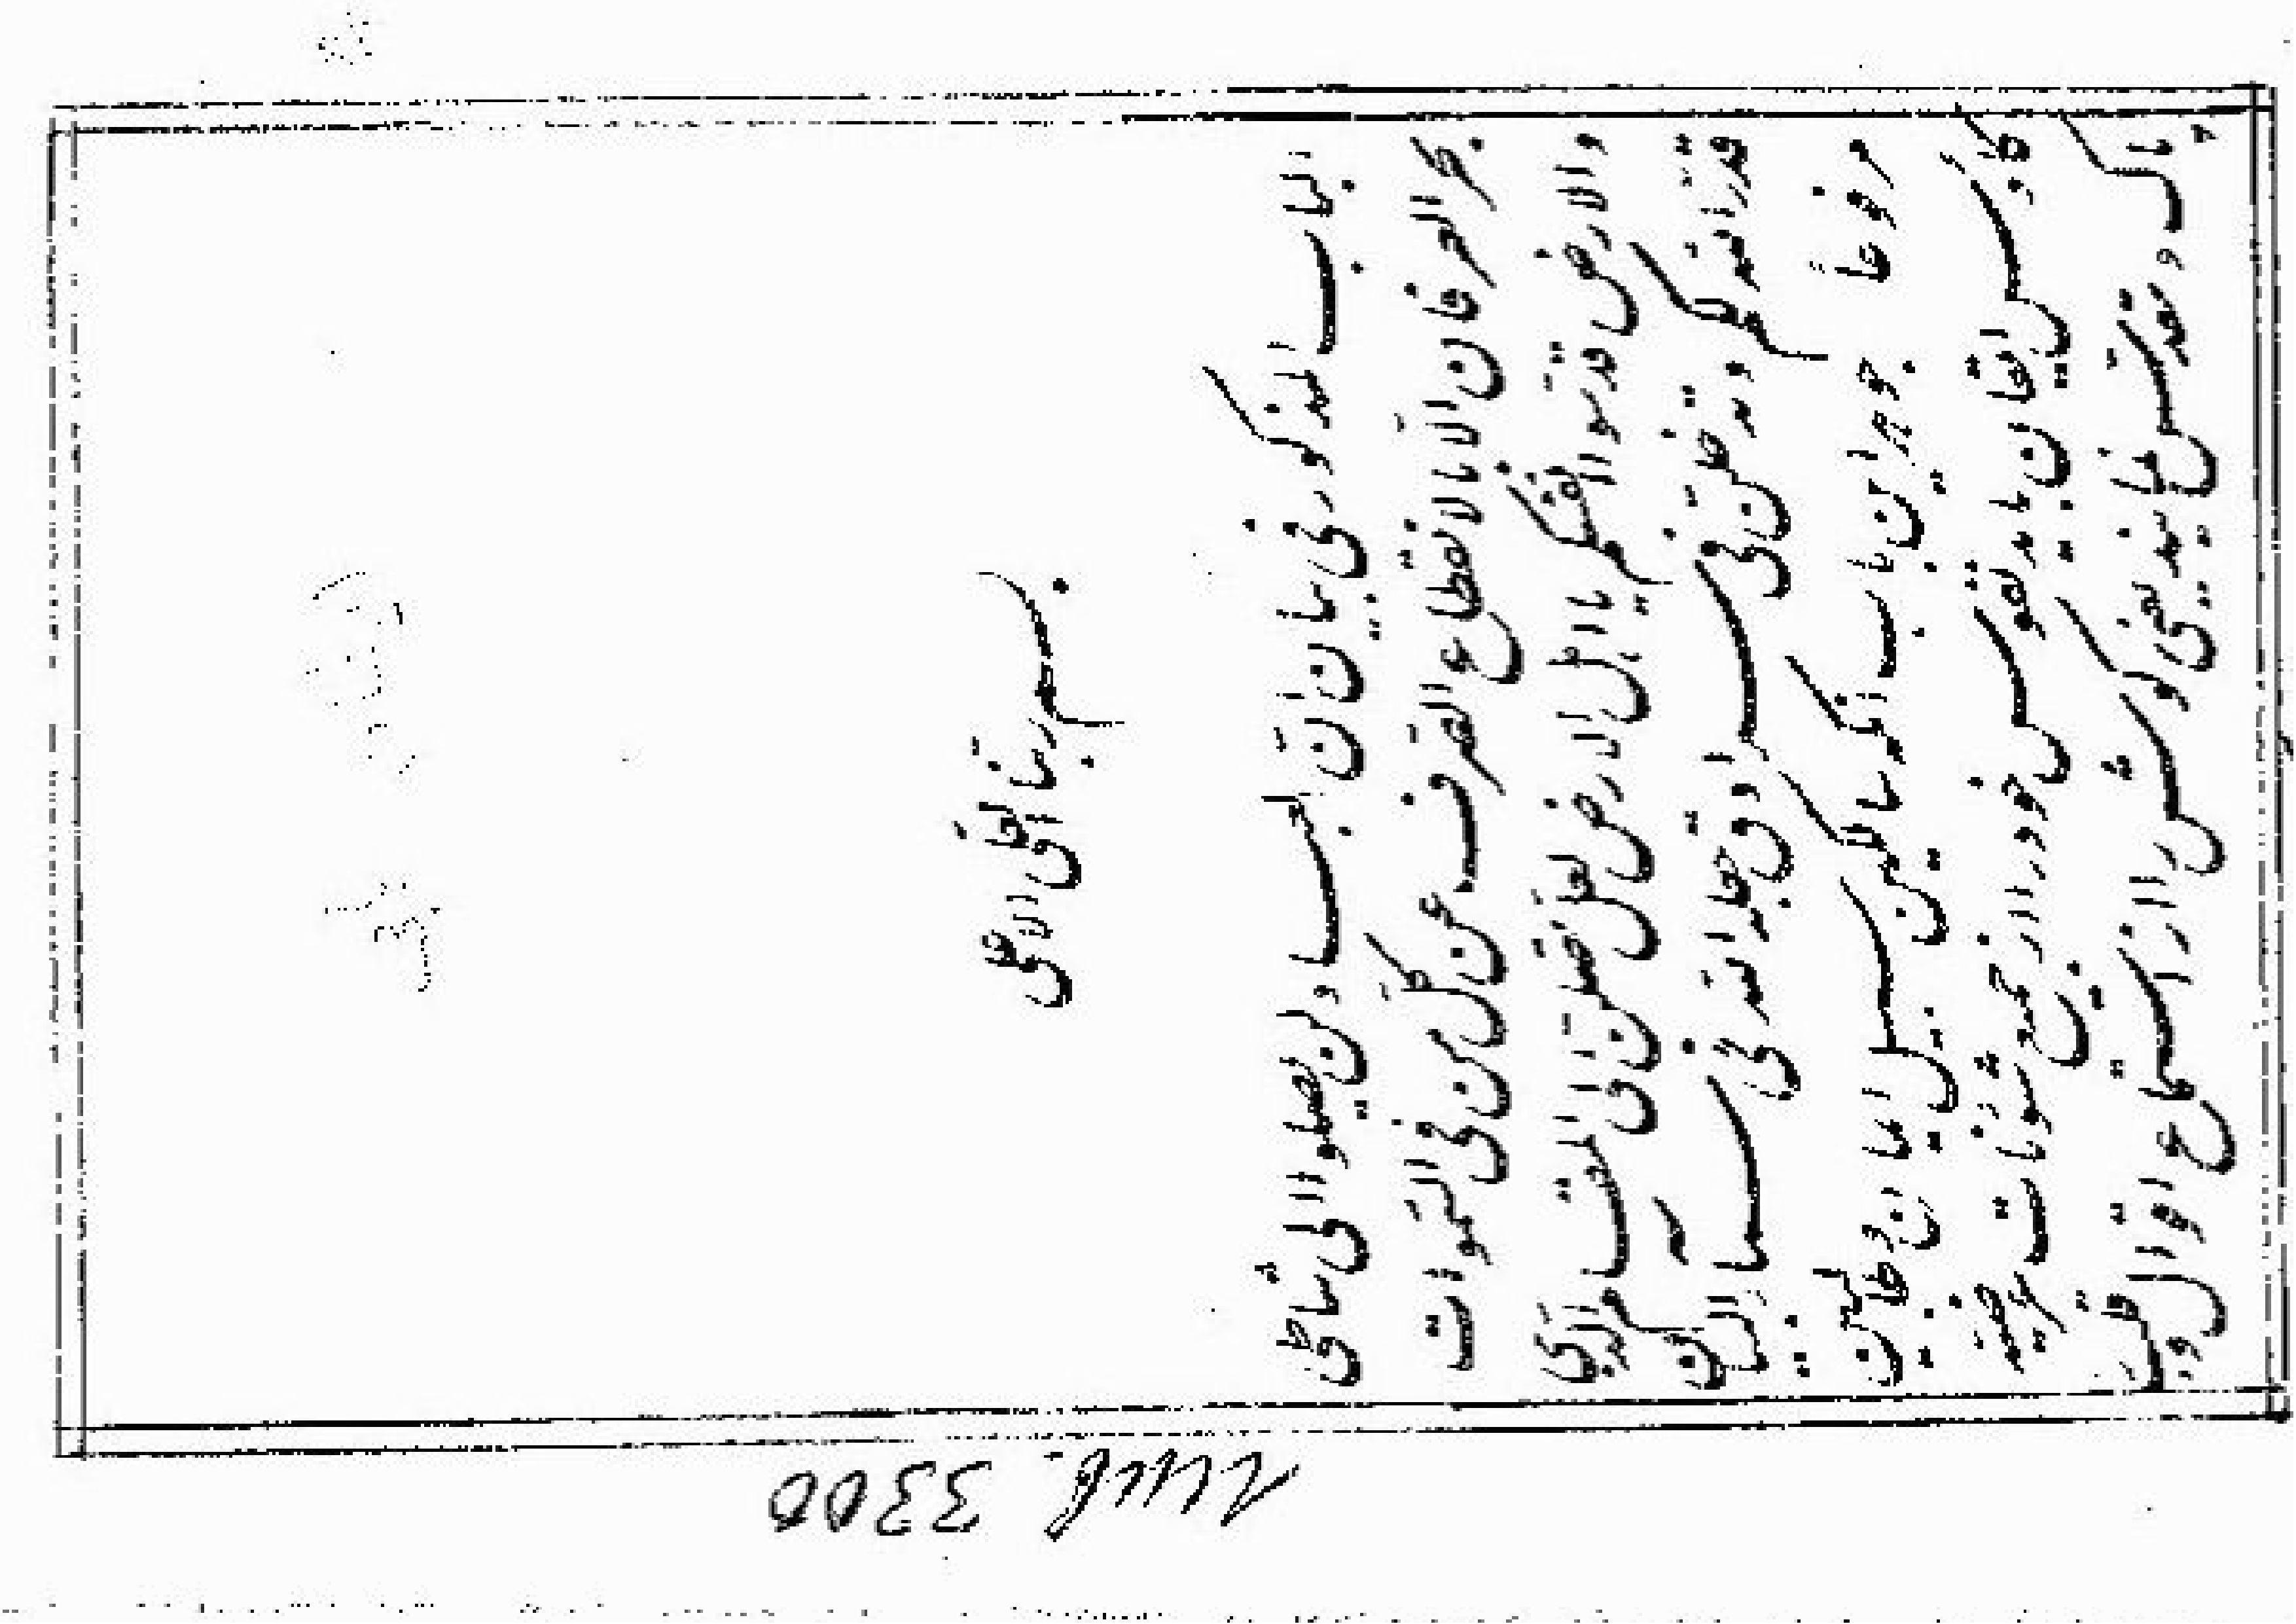 بسم ربنا العلی الاعلی
الباب المذکور فی بیان ان العباد لن یصلوا الی شاطئ
بحر العرفان الّا بالانقطاع الصّرف عن کلّ من فی السّموات
والارض قدّسوا انفسکم یا اهل الارض لعلّ تصلنّ الی المقام الّذی
قدّر اللّه لکم و تدخلنّ فی سرادق جعله اللّه فی سماء البیان
مرفوعاً جوهر این باب آنکه سالکین سبیل ایمان و طالبین
کؤوس ایقان باید نفوس خود را از جمیع شئونات عرضیّه
پاک و مقدّس نمایند یعنی گوش را از استماع اقوال و قلب
Инв. 3300